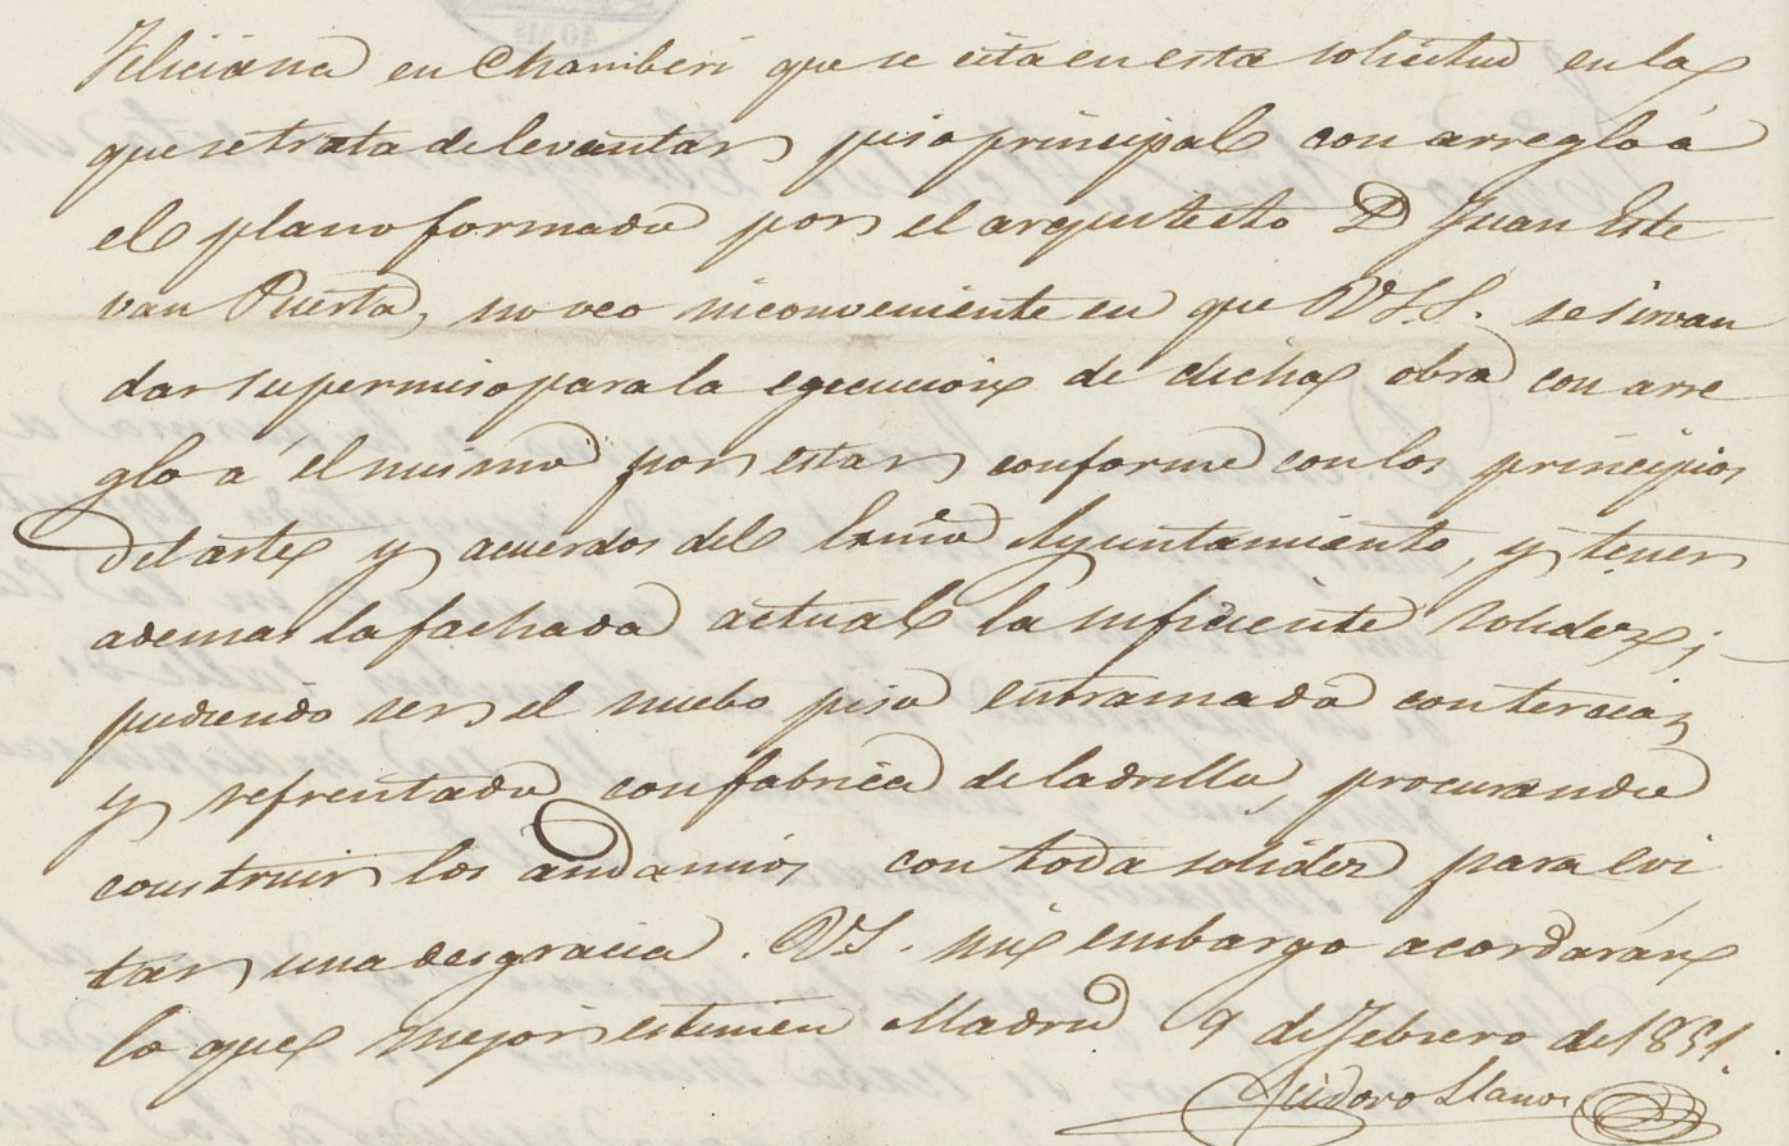 Feliciana en Chamberi que se cita en esta solicitud en la
que se trata de levantar piso principal con arreglo á
el plano formado por el arquitecto D Juan Este
van Puerta, no veo inconveniente en que V.S.S. se sirvan
dar su permiso para la egecucion de dicha obra con arre
glo á el mismo por estar conforme con los principios
del arte y acuerdos del Exmo Ayuntamiento, y tener
ademas la fachada actual la suficiente solidez;
pudiendo ser el nuebo piso entramado con tercias
y refrentado con fabrica de ladrillo, procurando
construir los andamios con toda solidez para evi
tar una desgracia. VS. sin embargo acordarán
lo que mejor estimen Madrid 9 de Febrero de 1851.
Isidoro Llanos